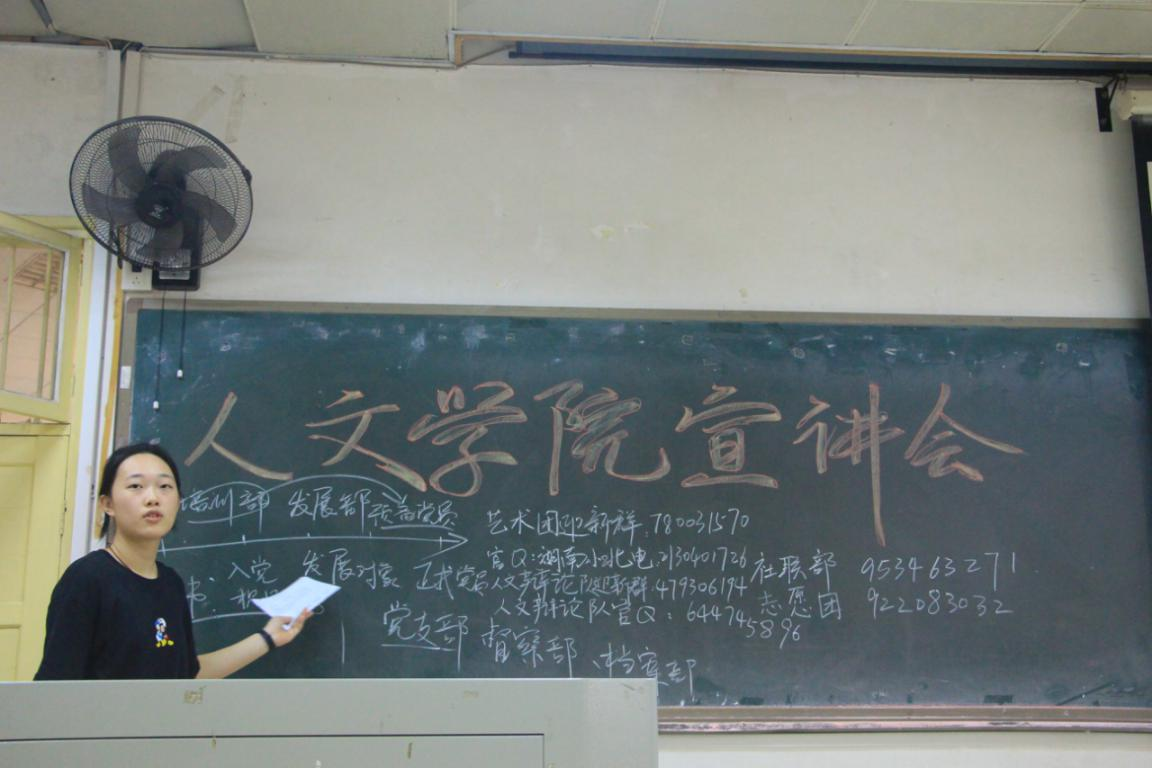 人文学院宣讲会
培训部 发展部 预备党员
艺术团迎新群:780031570
官Q:湖南小北电:2130401726
入党 发展对象 正式党员
人文辩论队迎新群:479306194
人文辩论队官Q:644745896
社联部 953463271
志愿团 922083032
党支部 督察部、档案部